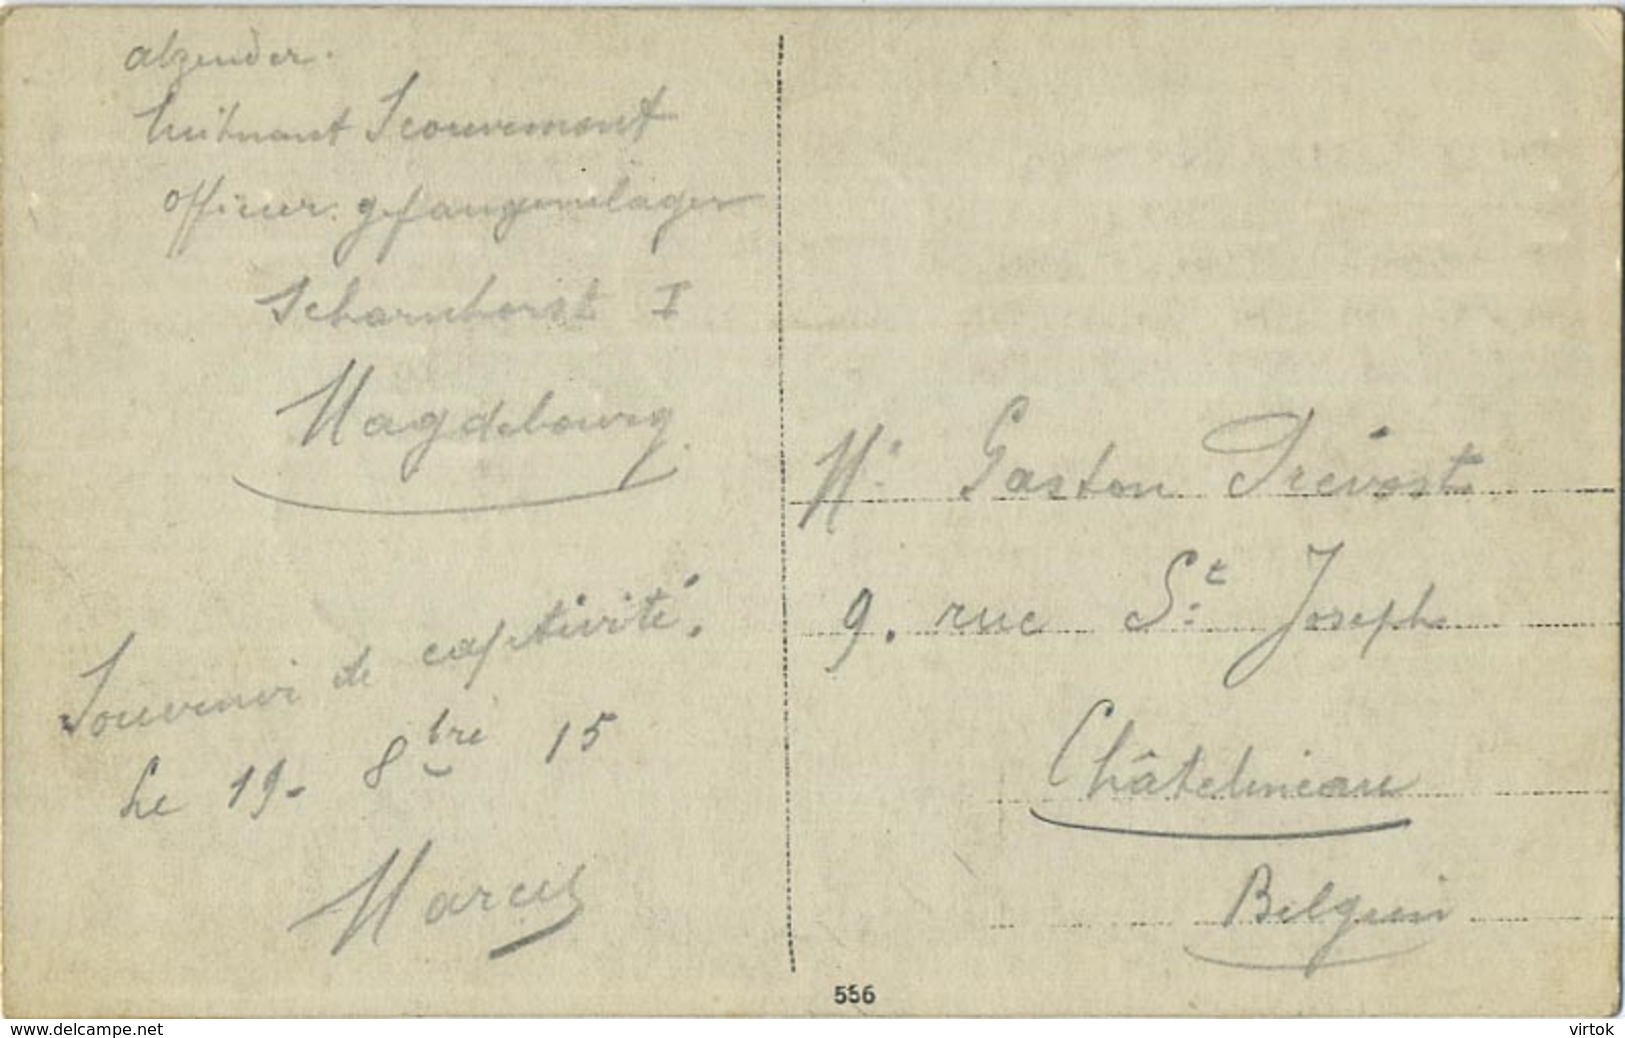 abzender.
Leutnant Scouvemont
officier. gefangenelager
Scharnhorst I
Magdebourg.
Souvenir de captivité.
Le 19- 8bre 15
Marcel
Mr Gaston Prévost
9. rue St Joseph
Châtelineau
Belgien
556
www.delcampe.net
virtok